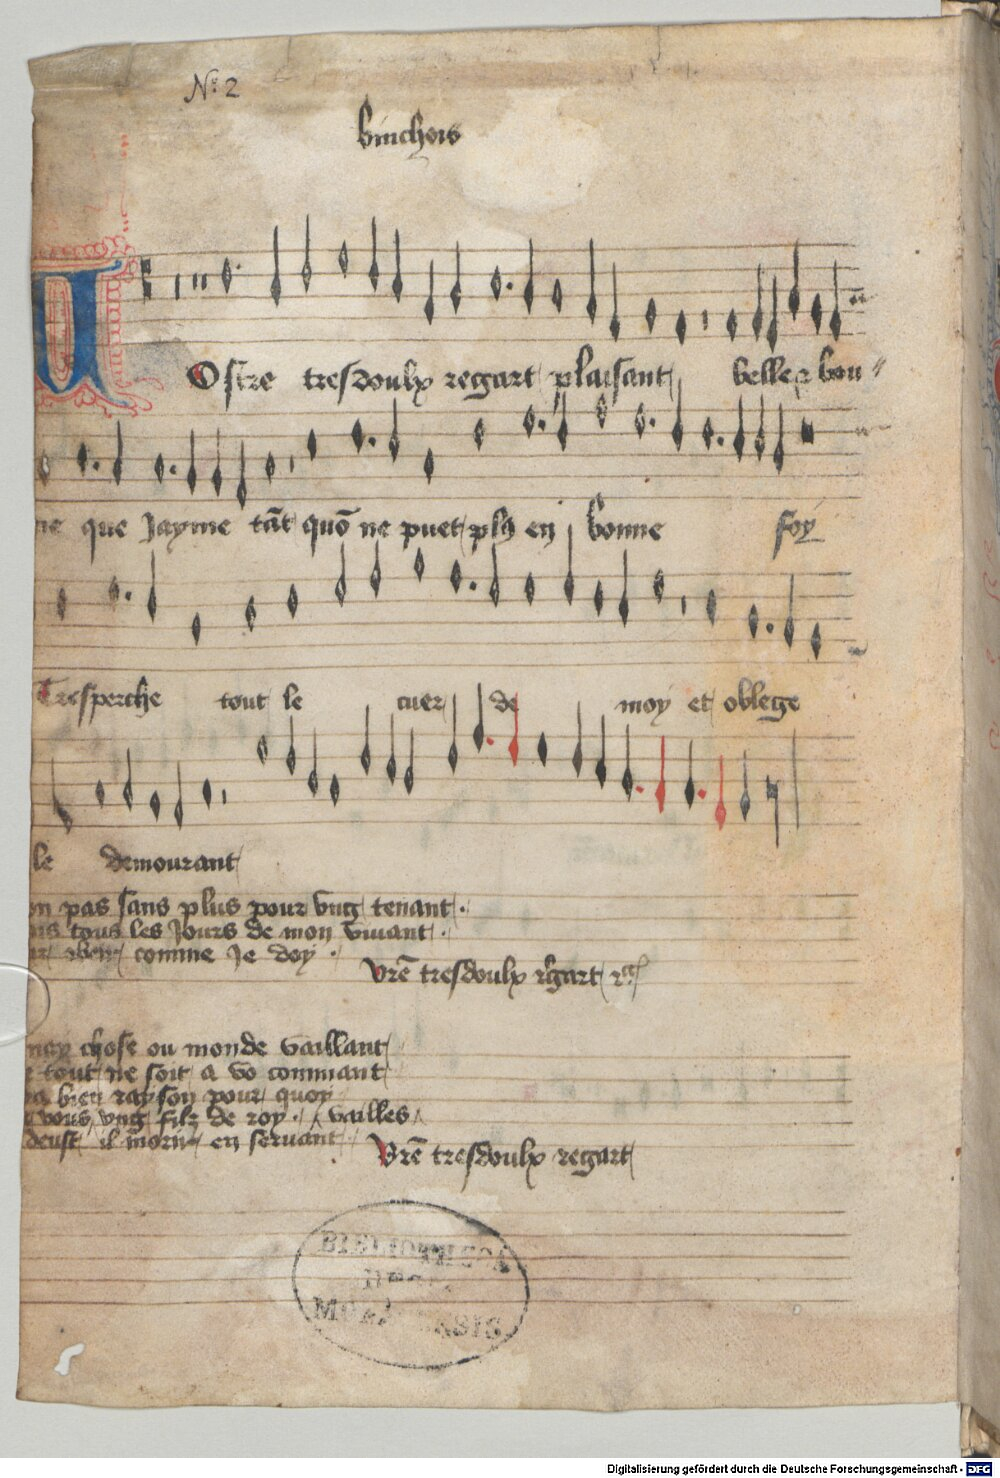 Nr. 2
binchois
Vostre tresdoulx regart plaisant belle et bon
ne que Jayme tāt quō ne puet plus en bonne foy
Tresperche tout le cuer de moy et oblege
le demourant
on pas sans plus pour vng tenant .
tous les Jours de mon viuant .
comme Je doy .
Vrē tresdoulx regart
nay chose ou monde vaillant
tout ne soit a vo commant
bien rayson pour quoy
vous vng filz de roy . vailles
deust il morir en seruant
Vrē tresdoulx regart
BIBLIOTHECA
MONACENSIS
Digitalisierung gefördert durch die Deutsche Forschungsgemeinschaft - DFG